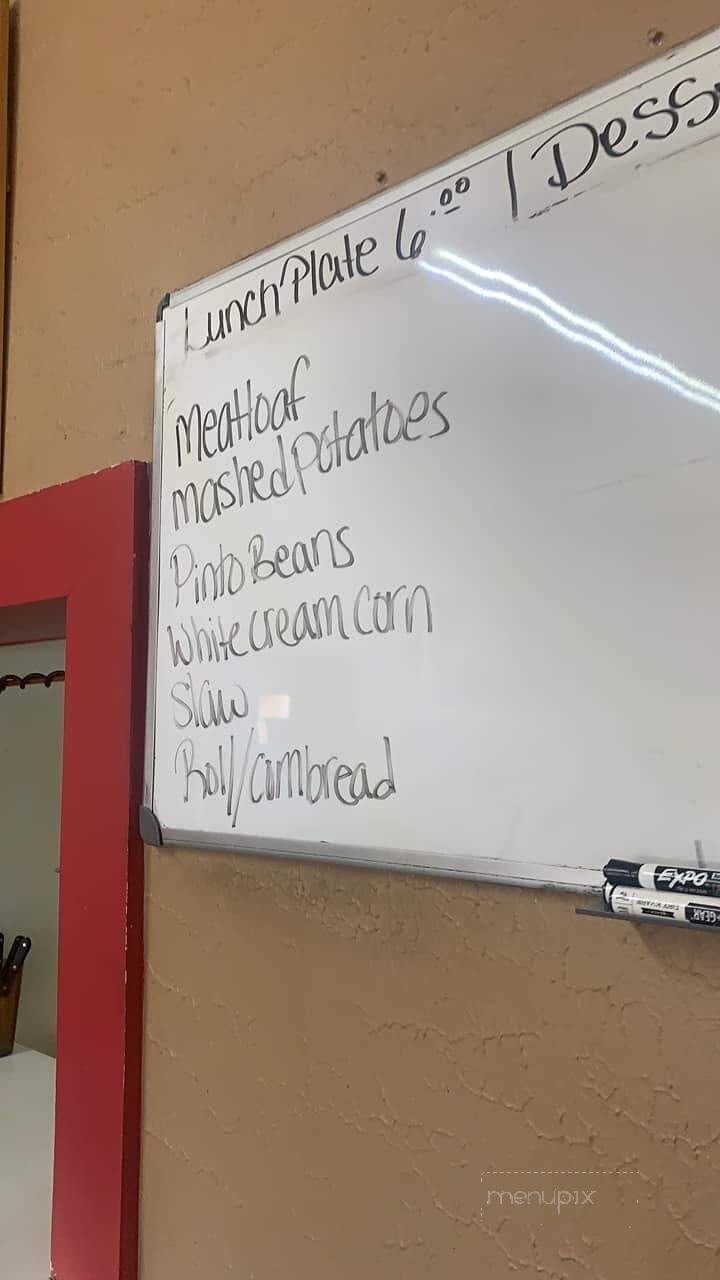 Lunch Plate 6.00 | Dess
Meatloaf
mashed potatoes
Pinto Beans
White cream corn
Slaw
Roll/cornbread
EXPO
GEAR
menupix